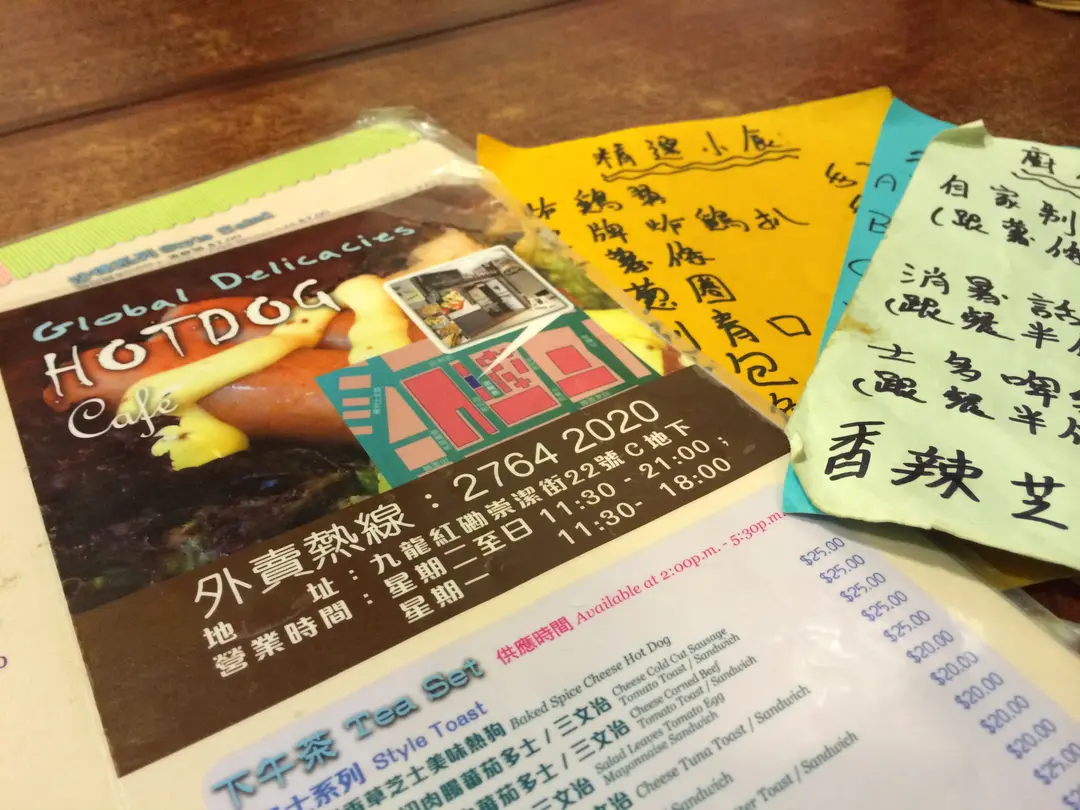 Style Salad
Global Delicacies
HOTDOG
Café
外賣熱線：2764 2020
地址：九龍紅磡崇潔街22號C地下
營業時間：星期二至日 11:30 - 21:00；
星期一 11:30- 18:00
下午茶 Tea Set 供應時間 Available at 2:00p.m. - 5:30p.m.
士系列 Style Toast
香草芝士美味熱狗 Baked Spice Cheese Hot Dog $25.00
切肉腸蕃茄多士 / 三文治 Cheese Cold Cut Sausage Tomato Toast / Sandwich $25.00
蕃茄多士 / 三文治 Cheese Corned Beef Tomato Toast / Sandwich $25.00
三文治 Salad Leaves Tomato Egg Mayonnaise Sandwich $25.00
/ 三文治 Cheese Tuna Toast / Sandwich $20.00
Toast / Sandwich $20.00
$20.00
$20.00
$20.00
精選小食
鷄翼
牌吟鷄扒
薯條
葱圈
青口
包
A
B
自家制
(跟薯條
消暑
(跟餐半
士多啤
(跟餐半
香辣芝